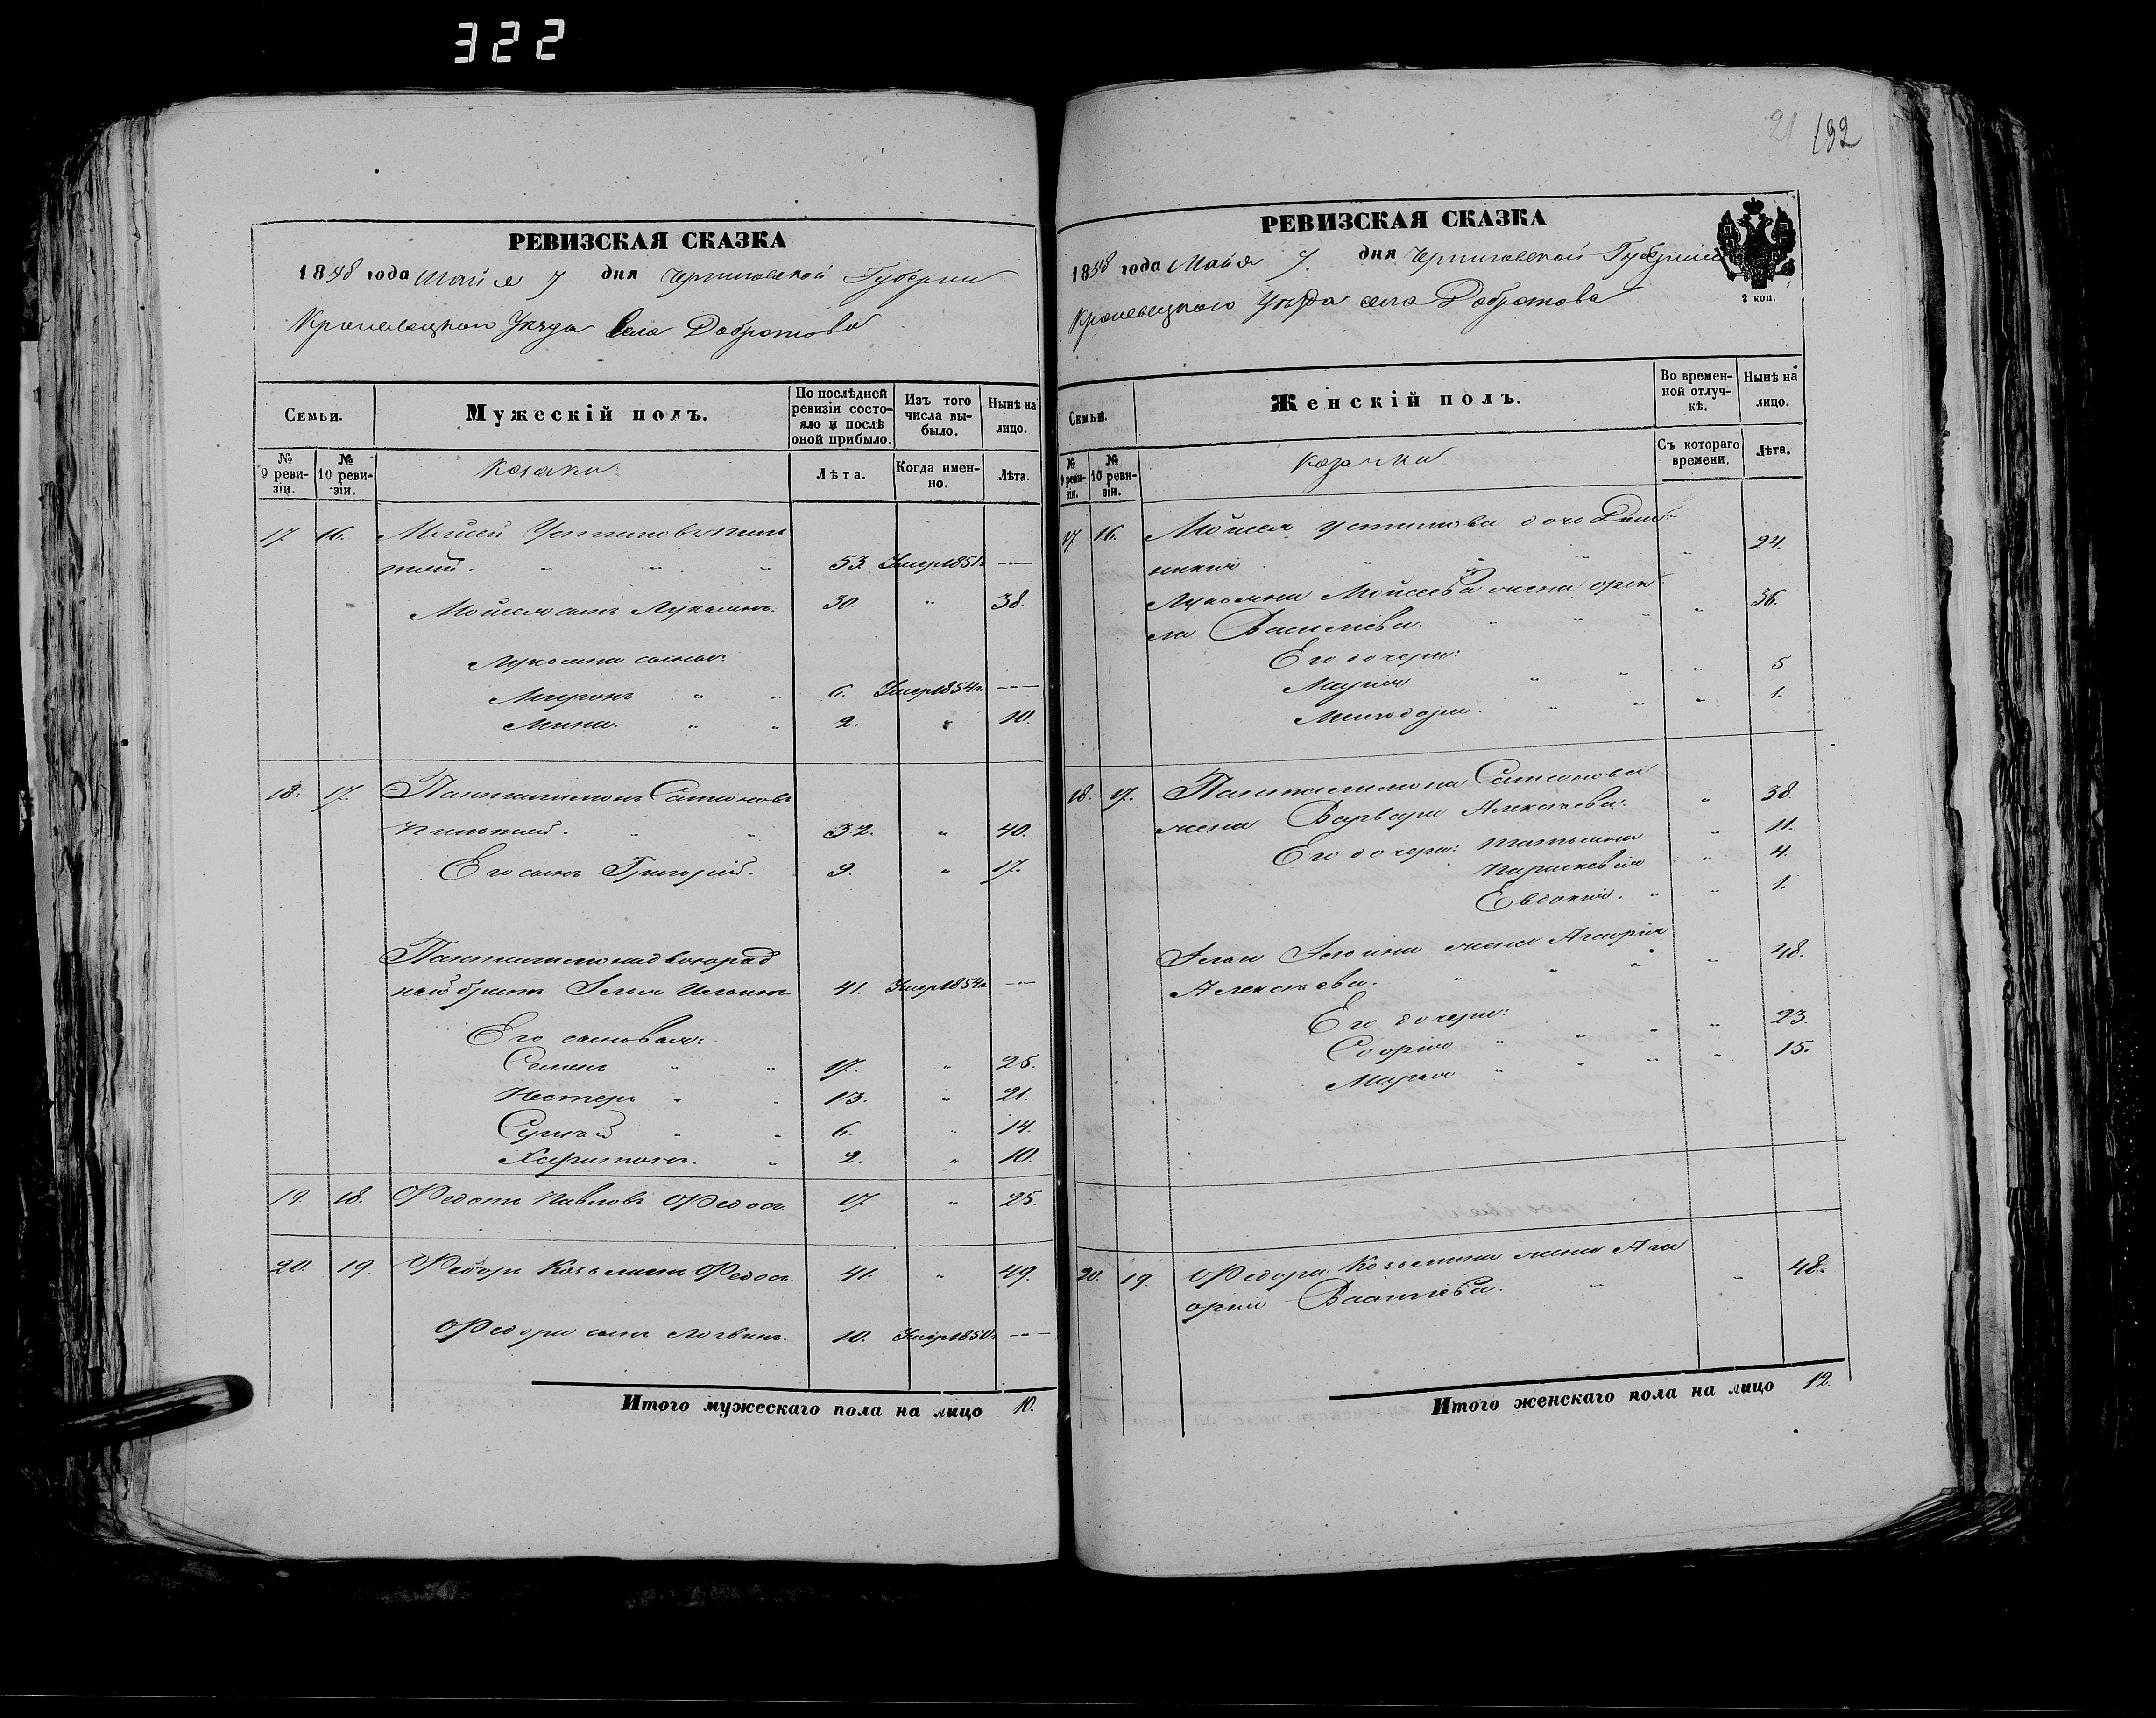 322
21 192
РЕВИЗСКАЯ СКАЗКА
1858 года Мая 7 дня Черниговской Губернии
Кролевецкаго Уезда Села Добротова
Семьи.
Мужескій полъ.
По послѣдней ревизіи состояло и послѣ оной прибыло.
Изъ того числа выбыло.
Нынѣ на лицо.
№ 9 ревизіи.
№ 10 ревизіи.
Козаки
Лѣта.
Когда именно.
Лѣта.
17 16. Мойсей Устиновъ
53. Умер 1851г. —
Мойсея сынъ Лукьянъ. 30. " 38.
Лукьяна сыновья:
Миронъ " " 6. Умер 1854г. —
Мина. " " 2. " 10.
18. 17. Пантилимонъ Самсоновъ
" " 32. " 40.
Его сынъ Григорій. 9. " 17.
Пантилимона двоюрод
ный братъ Илья Ильинъ 41. Умер 1854г. —
Его сыновья:
Семенъ " " 17. " 25.
Нестеръ " " 13. " 21.
" " 6. " 14.
Харитонъ. " 2. " 10.
19. 18. Федотъ Павловъ 17 " 25.
20. 19. Федоръ Козьминъ 41. " 49.
Федора сынъ Логвинъ. 10. Умер 1850г. —
Итого мужескаго пола на лицо 10.
РЕВИЗСКАЯ СКАЗКА
1858 года Мая 7. дня Черниговской Губерніи
2 коп.
Кролевецкаго Уезда села Добротова
Семьи.
Женскій полъ.
Во временной отлучкѣ.
Нынѣ на лицо.
№ 9 ревизіи.
№ 10 ревизіи.
Козачки
Съ котораго времени.
Лѣта.
17 16. Мойсея Устинова дочь
" 24.
Лукьяна Мойсеева жена
Василіева. " " " 36.
Его дочери:
Марія " " " 5
Минодора. " " " 1.
18. 17. Пантилимона Самсонова
жена Варвара Алексѣева: " 38.
Его дочери: Татьяна " 11.
Параскевія " 4.
Евдокія. " " 1.
Ильи Ильина жена
Алексѣева. " " " " 48.
Его дочери:
" " " 23.
Марья " " " " 15.
20. 19. Федора Козьмина жена Ага
Василіева. " " 48.
Итого женскаго пола на лицо 12.